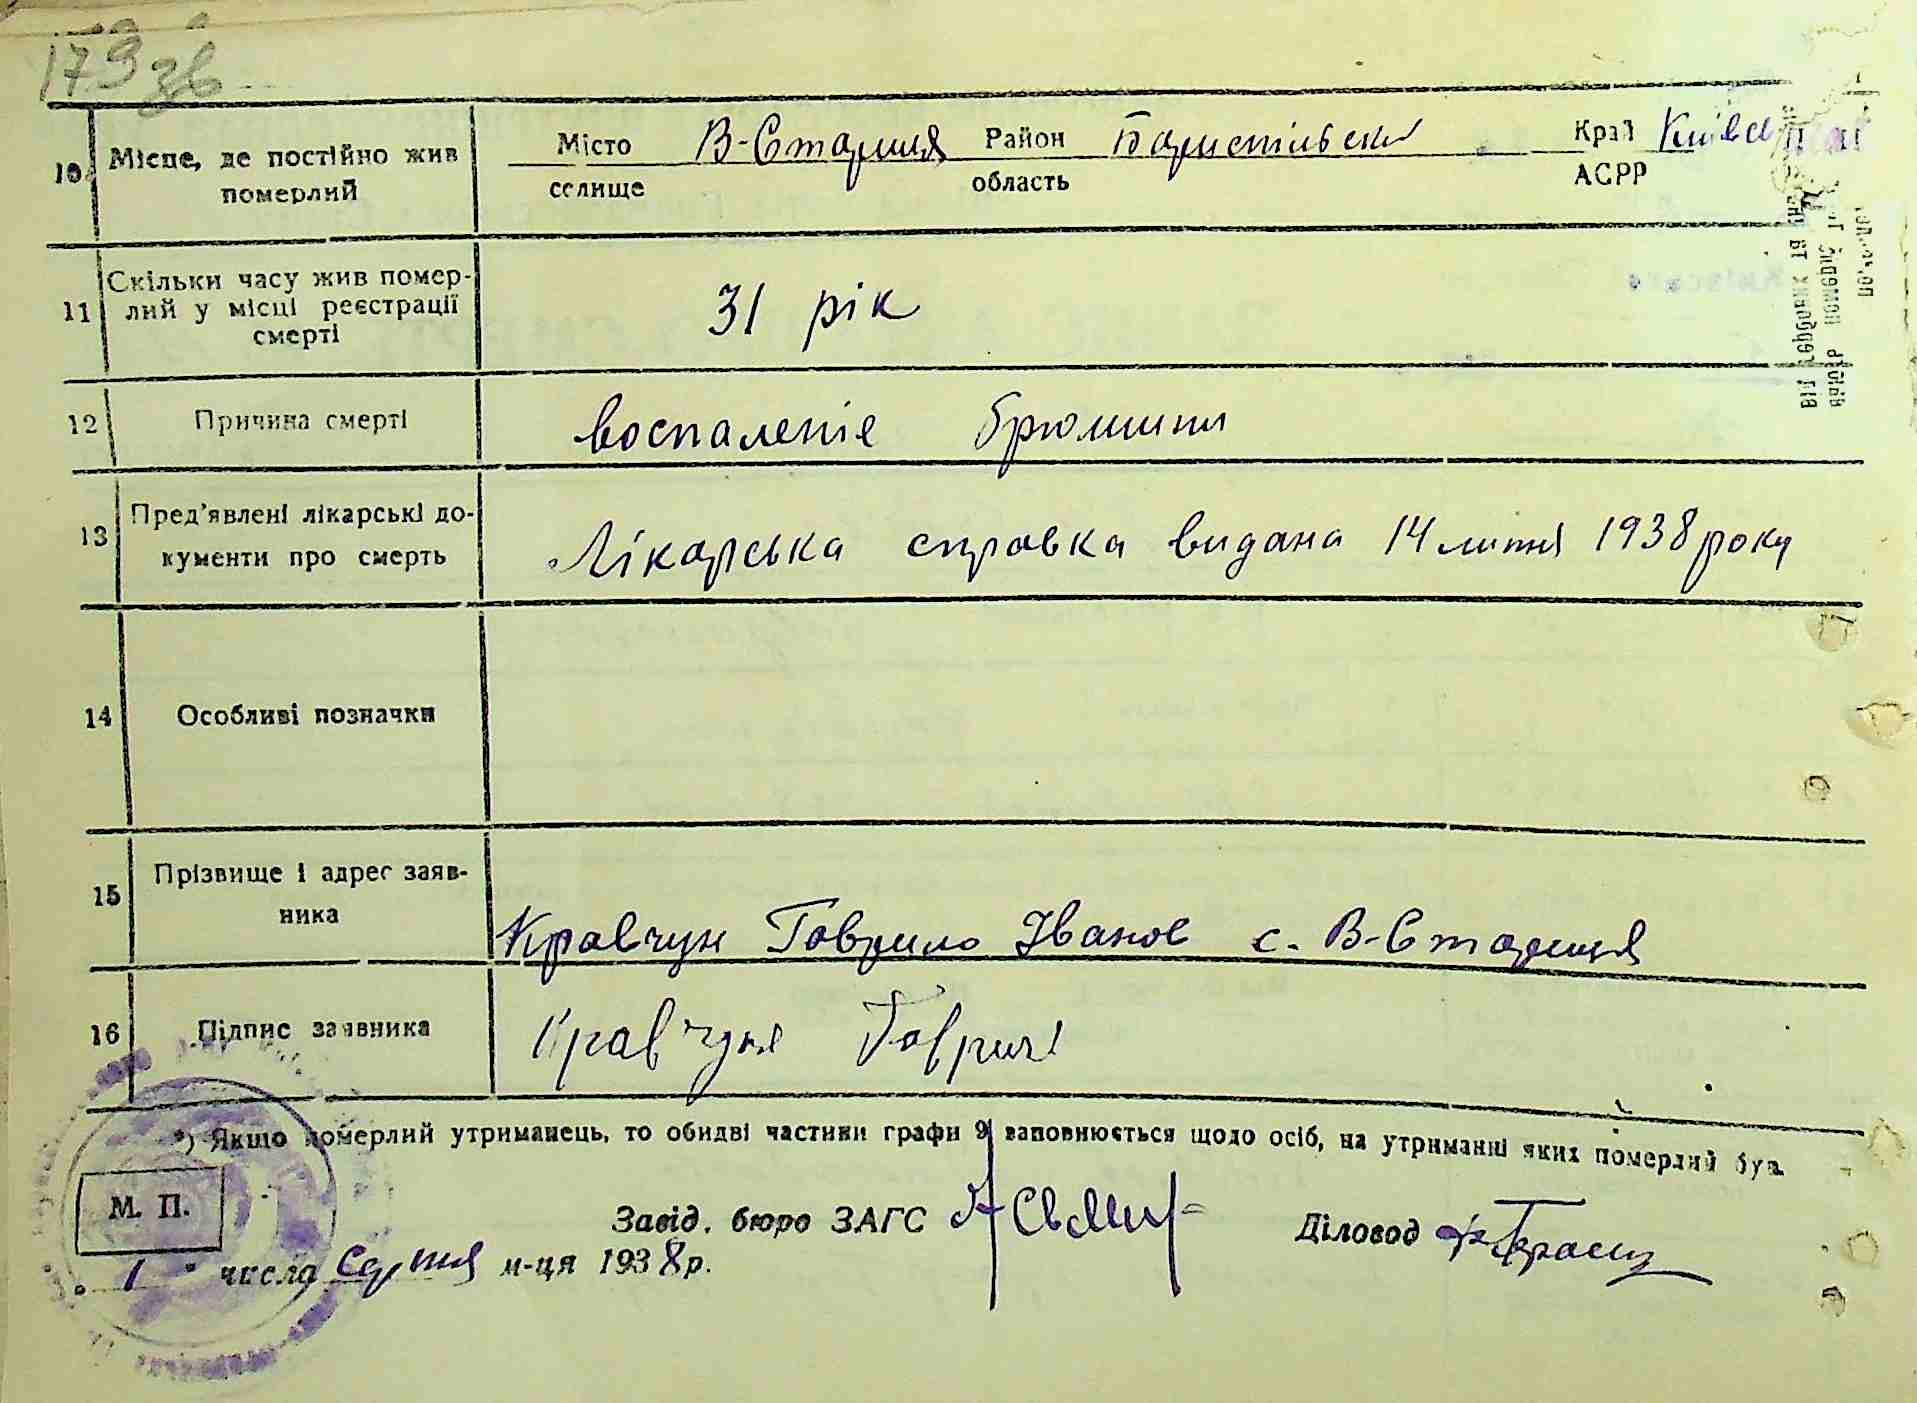 179 зв
10. Місце, де постійно жив померлий
Місто селище В-Стариця Район область Бориспільськи Край АСРР
11 Скільки часу жив помер-
лий у місці реєстрації
смерті
31 рік
12 Причина смерті
воспаленіе брюшини
13 Пред'явлені лікарські до-
кументи про смерть
Лікарська справка видана 14 липня 1938 року
14 Особливі позначки
15 Прізвище і адрес заяв-
ника
Кравчун Гаврило Іванов с. В-Стариця
16 Підпис заявника
Кравчун Гаврил
*) Якщо померлий утриманець, то обидві частини графи 9 заповнюється щодо осіб, на утриманні яких померлий був.
М. П.
Завід. бюро ЗАГС
Діловод
„ 1 " числа серпня м-ця 1938 р.